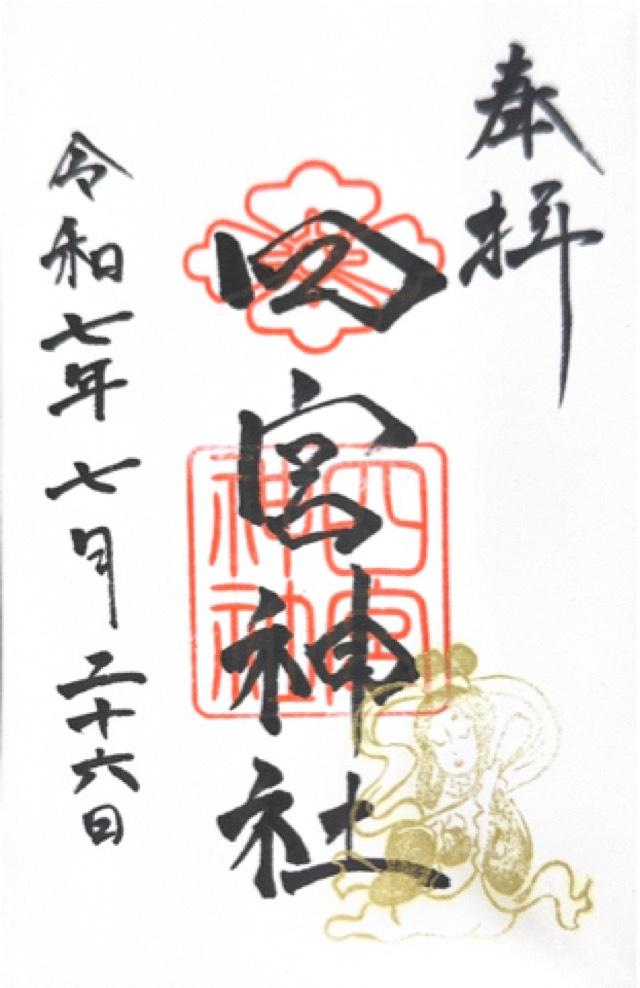 奉拝
四宮神社
四宮
神社
令和七年七月二十六日